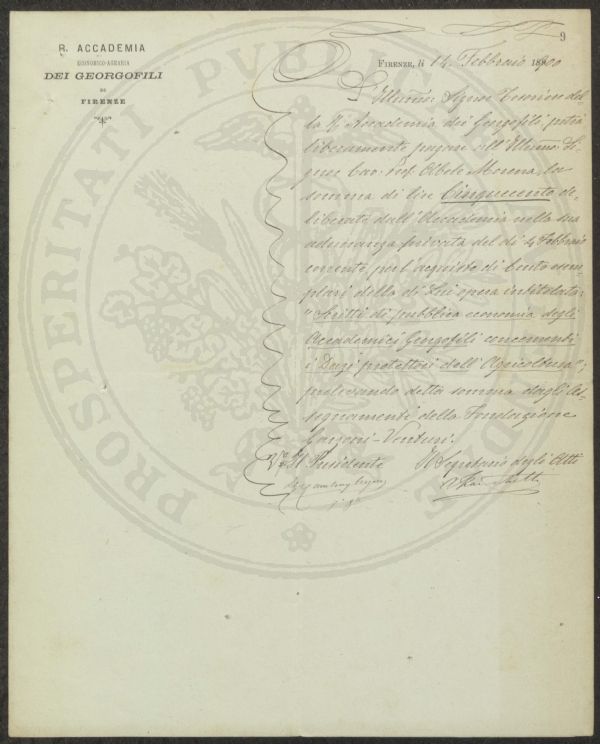 9
R. ACCADEMIA
ECONOMICO-AGRARIA
DEI GEORGOFILI
DI
FIRENZE
FIRENZE, li 14 Febbraio 1900
L'Illmo. Signor Tesoriere del-
la R. Accademia dei Georgofili, potrà
liberamente pagare all'Illmo. Si-
gnor Cav. Prof. Abele Morena, la
somma di lire Cinquecento de-
liberate dall'Accademia nella sua
adunanza privata del dì 4 Febbraio
corrente, per l'acquisto di cento esem-
plari della di Lui opera intitolata:
"Scritti di pubblica economia degli
Accademici Georgofili concernenti
i Dazi protettori dell'Agricoltura";
prelevando detta somma dagli As-
segnamenti della Fondazione
Garzoni-Venturi.
Vo. Il Presidente
Il Segretario degli Atti
PROSPERITATI PUBLICAE